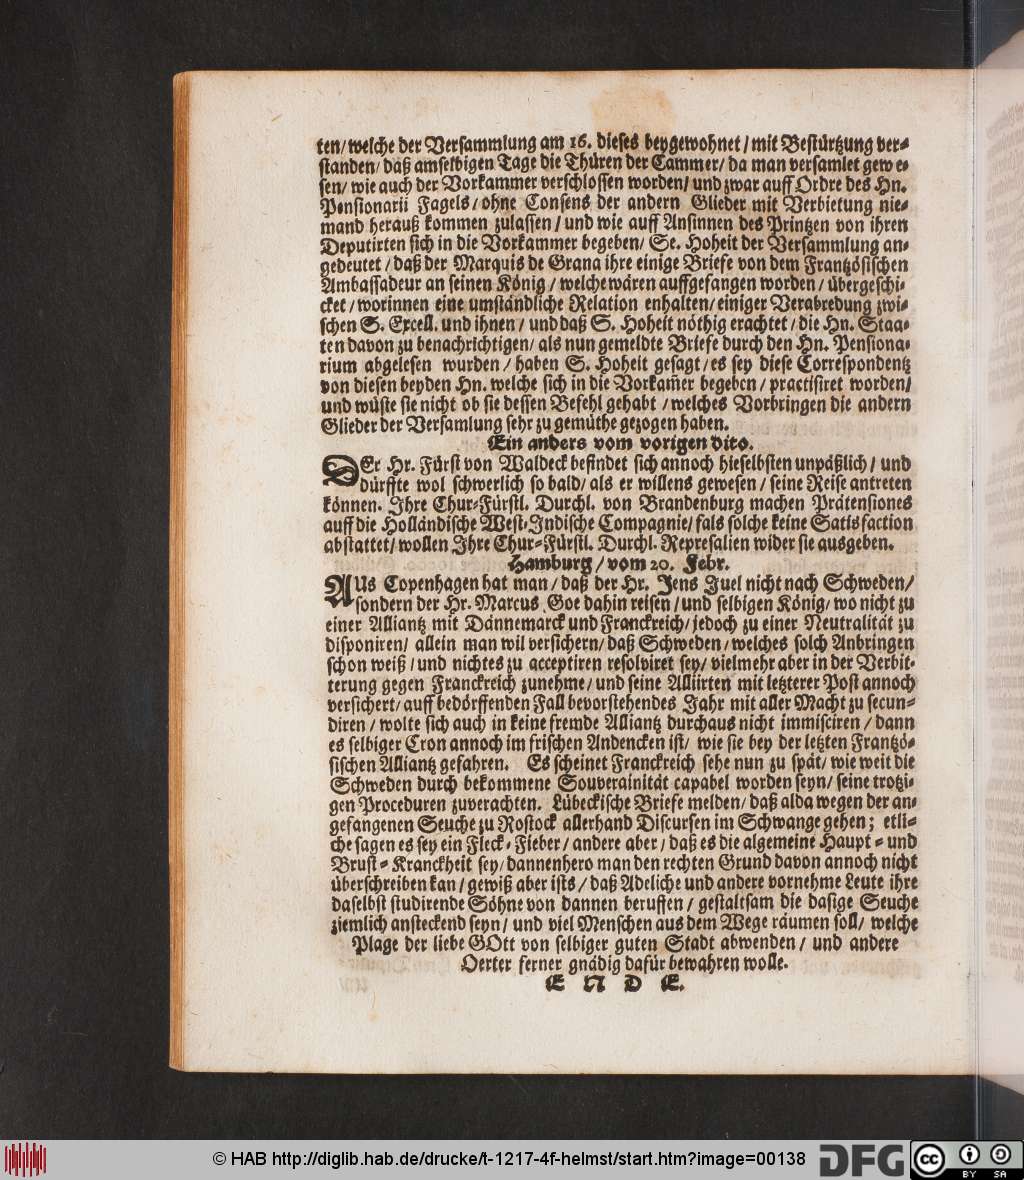 ten/welche der Versammlung am 16. dieses beygewohnet/mit Bestürtzung ver-
standen/ daß amselbigen Tage die Thüren der Cammer/ da man versamlet gewe-
sen/ wie auch der Vorkammer verschlossen worden/ und zwar auff Ordre des Hn.
Pensionarii Fagels/ ohne Consens der andern Glieder mit Verbietung nie-
mand herauß kommen zulassen/ und wie auff Ansinnen des Printzen von ihren
Deputirten sich in die Vorkammer begeben/ Se. Hoheit der Versammlung an-
gedeutet/ daß der Marquis de Grana ihre einige Briefe von dem Frantzösischen
Ambassadeur an seinen König/ welche wären auffgefangen worden/ übergeschi-
cket/ worinnen eine umständliche Relation enhalten/ einiger Verabredung zwi-
schen S. Excell. und ihnen/ und daß S. Hoheit nöthig erachtet/ die Hn. Staa-
ten davon zu benachrichtigen/ als nun gemeldte Briefe durch den Hn. Pensiona-
rium abgelesen wurden/ haben S. Hoheit gesagt/ es sey diese Correspondentz
von diesen beyden Hn. welche sich in die Vorkam̃er begeben/ practisiret worden/
und wüste sie nicht ob sie dessen Befehl gehabt/ welches Vorbringen die andern
Glieder der Versamlung sehr zu gemüthe gezogen haben.
Ein anders vom vorigen dito.
DEr Hr. Fürst von Waldeck befindet sich annoch hieselbsten unpäßlich/ und
dürffte wol schwerlich so bald/ als er willens gewesen/ seine Reise antreten
können. Ihre Chur-Fürstl. Durchl. von Brandenburg machen Prätensiones
auff die Holländische West-Indische Compagnie/ fals solche keine Satisfaction
abstattet/ wollen Ihre Chur-Fürstl. Durchl. Represalien wider sie ausgeben.
Hamburg/ vom 20. Febr.
AUs Copenhagen hat man/ daß der Hr. Jens Juel nicht nach Schweden/
sondern der Hr. Marcus Goe dahin reisen/ und selbigen König/ wo nicht zu
einer Alliantz mit Dännemarck und Franckreich/ jedoch zu einer Neutralität zu
disponiren/ allein man wil versichern/ daß Schweden/ welches solch Anbringen
schon weiß/ und nichtes zu acceptiren resolviret sey/ vielmehr aber in der Verbit-
terung gegen Franckreich zunehme/ und seine Alliirten mit letzterer Post annoch
versichert/ auff bedörffenden Fall bevorstehendes Jahr mit aller Macht zu secun-
diren/ wolte sich auch in keine fremde Alliantz durchaus nicht immisciren/ dann
es selbiger Cron annoch im frischen Andencken ist/ wie sie bey der letzten Frantzö-
sischen Alliantz gefahren. Es scheinet Franckreich sehe nun zu spät/ wie weit die
Schweden durch bekommene Souverainität capabel worden seyn/ seine trotzi-
gen Proceduren zuverachten. Lübeckische Briefe melden/ daß alda wegen der an-
gefangenen Seuche zu Rostock allerhand Discursen im Schwange gehen; etli-
che sagen es sey ein Fleck-Fieber/ andere aber/ daß es die algemeine Haupt- und
Brust-Kranckheit sey/ dannenhero man den rechten Grund davon annoch nicht
überschreiben kan/ gewiß aber ists/ daß Adeliche und andere vornehme Leute ihre
daselbst studirende Söhne von dannen beruffen/ gestaltsam die dasige Seuche
ziemlich ansteckend seyn/ und viel Menschen aus dem Wege räumen soll/ welche
Plage der liebe GOtt von selbiger guten Stadt abwenden/ und andere
Oerter ferner gnädig dafür bewahren wolle.
E N D E.
© HAB http://diglib.hab.de/drucke/t-1217-4f-helmst/start.htm?image=00138
DFG
cc BY SA